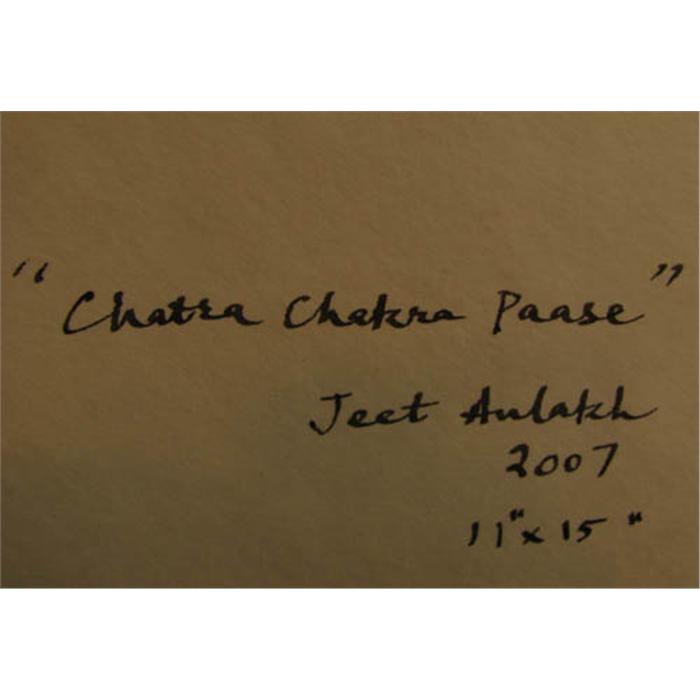 "Chatra Chakra Paase"
Jeet Aulakh
2007
11"x 15"